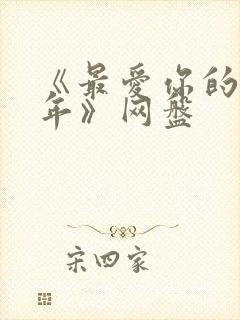 《最爱你的
年》网盘
宋四家